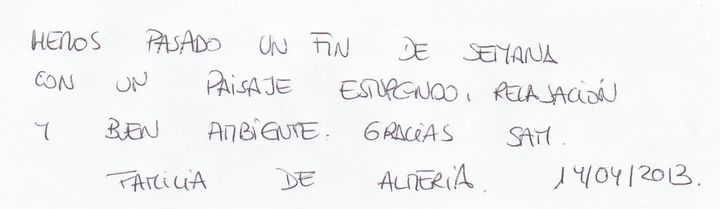 HEMOS PASADO UN FIN DE SEMANA
CON UN PAISAJE ESTUPENDO, RELAJACIÓN
Y BUEN AMBIENTE. GRACIAS SAM.
FAMILIA DE ALMERIA. 14/04/2013.